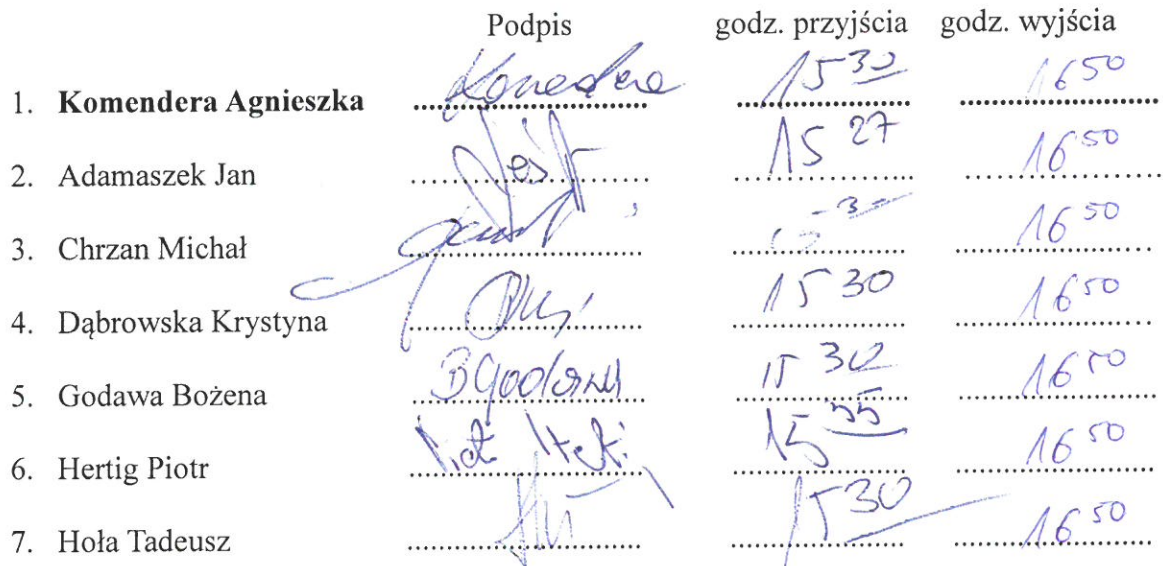 Podpis godz. przyjścia godz. wyjścia
1. Komendera Agnieszka Komendera 15 30 16 50
2. Adamaszek Jan 15 27 16 50
3. Chrzan Michał 16 50
4. Dąbrowska Krystyna 15 30 16 50
5. Godawa Bożena BGodawa 15 30 16 50
6. Hertig Piotr 15 35 16 50
7. Hoła Tadeusz 15 30 16 50